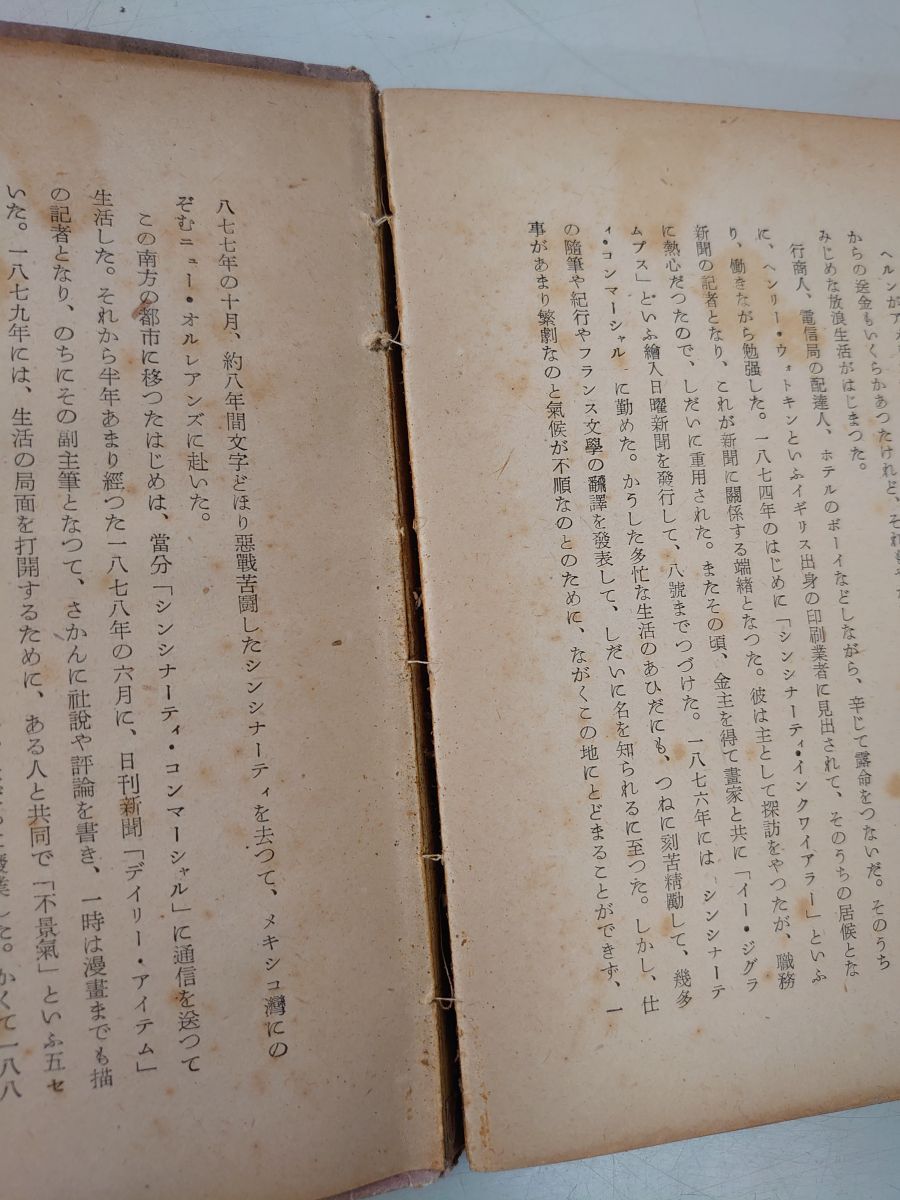 ヘルンがア
からの送金もいくらかあつたけれど、それも
みじめな放浪生活がはじまつた。
行商人、電信局の配達人、ホテルのボーイなどしながら、辛じて露命をつないだ。そのうち
に、ヘンリー・ウォトキンといふイギリス出身の印刷業者に見出されて、そのうちの居候とな
り、働きながら勉强した。一八七四年のはじめに「シンシナーティ・インクワイアラー」といふ
新聞の記者となり、これが新聞に關係する端緒となつた。彼は主として探訪をやつたが、職務
に熱心だつたので、しだいに重用された。またその頃、金主を得て畫家と共に「イー・ジグラ
ムプス」といふ繪入日曜新聞を發行して、八號までつづけた。一八七六年には シンシナーテ
ィ・コンマーシャル に勤めた。かうした多忙な生活のあひだにも、つねに刻苦精勵して、幾多
の隨筆や紀行やフランス文學の飜譯を發表して、しだいに名を知られるに至つた。しかし、仕
事があまり繁劇なのと氣候が不順なのとのために、ながくこの地にとどまることができず、一
八七七年の十月、約八年間文字どほり惡戰苦闘したシンシナーティを去つて、メキシコ灣にの
ぞむニュー・オルレアンズに赴いた。
この南方の都市に移つたはじめは、當分「シンシナーティ・コンマーシャル」に通信を送つて
生活した。それから半年あまり經つた一八七八年の六月に、日刊新聞「デイリー・アイテム」
の記者となり、のちにその副主筆となつて、さかんに社說や評論を書き、一時は漫畫までも描
いた。一八七九年には、生活の局面を打開するために、ある人と共同で「不景氣」といふ五セ
した。かくて一八八